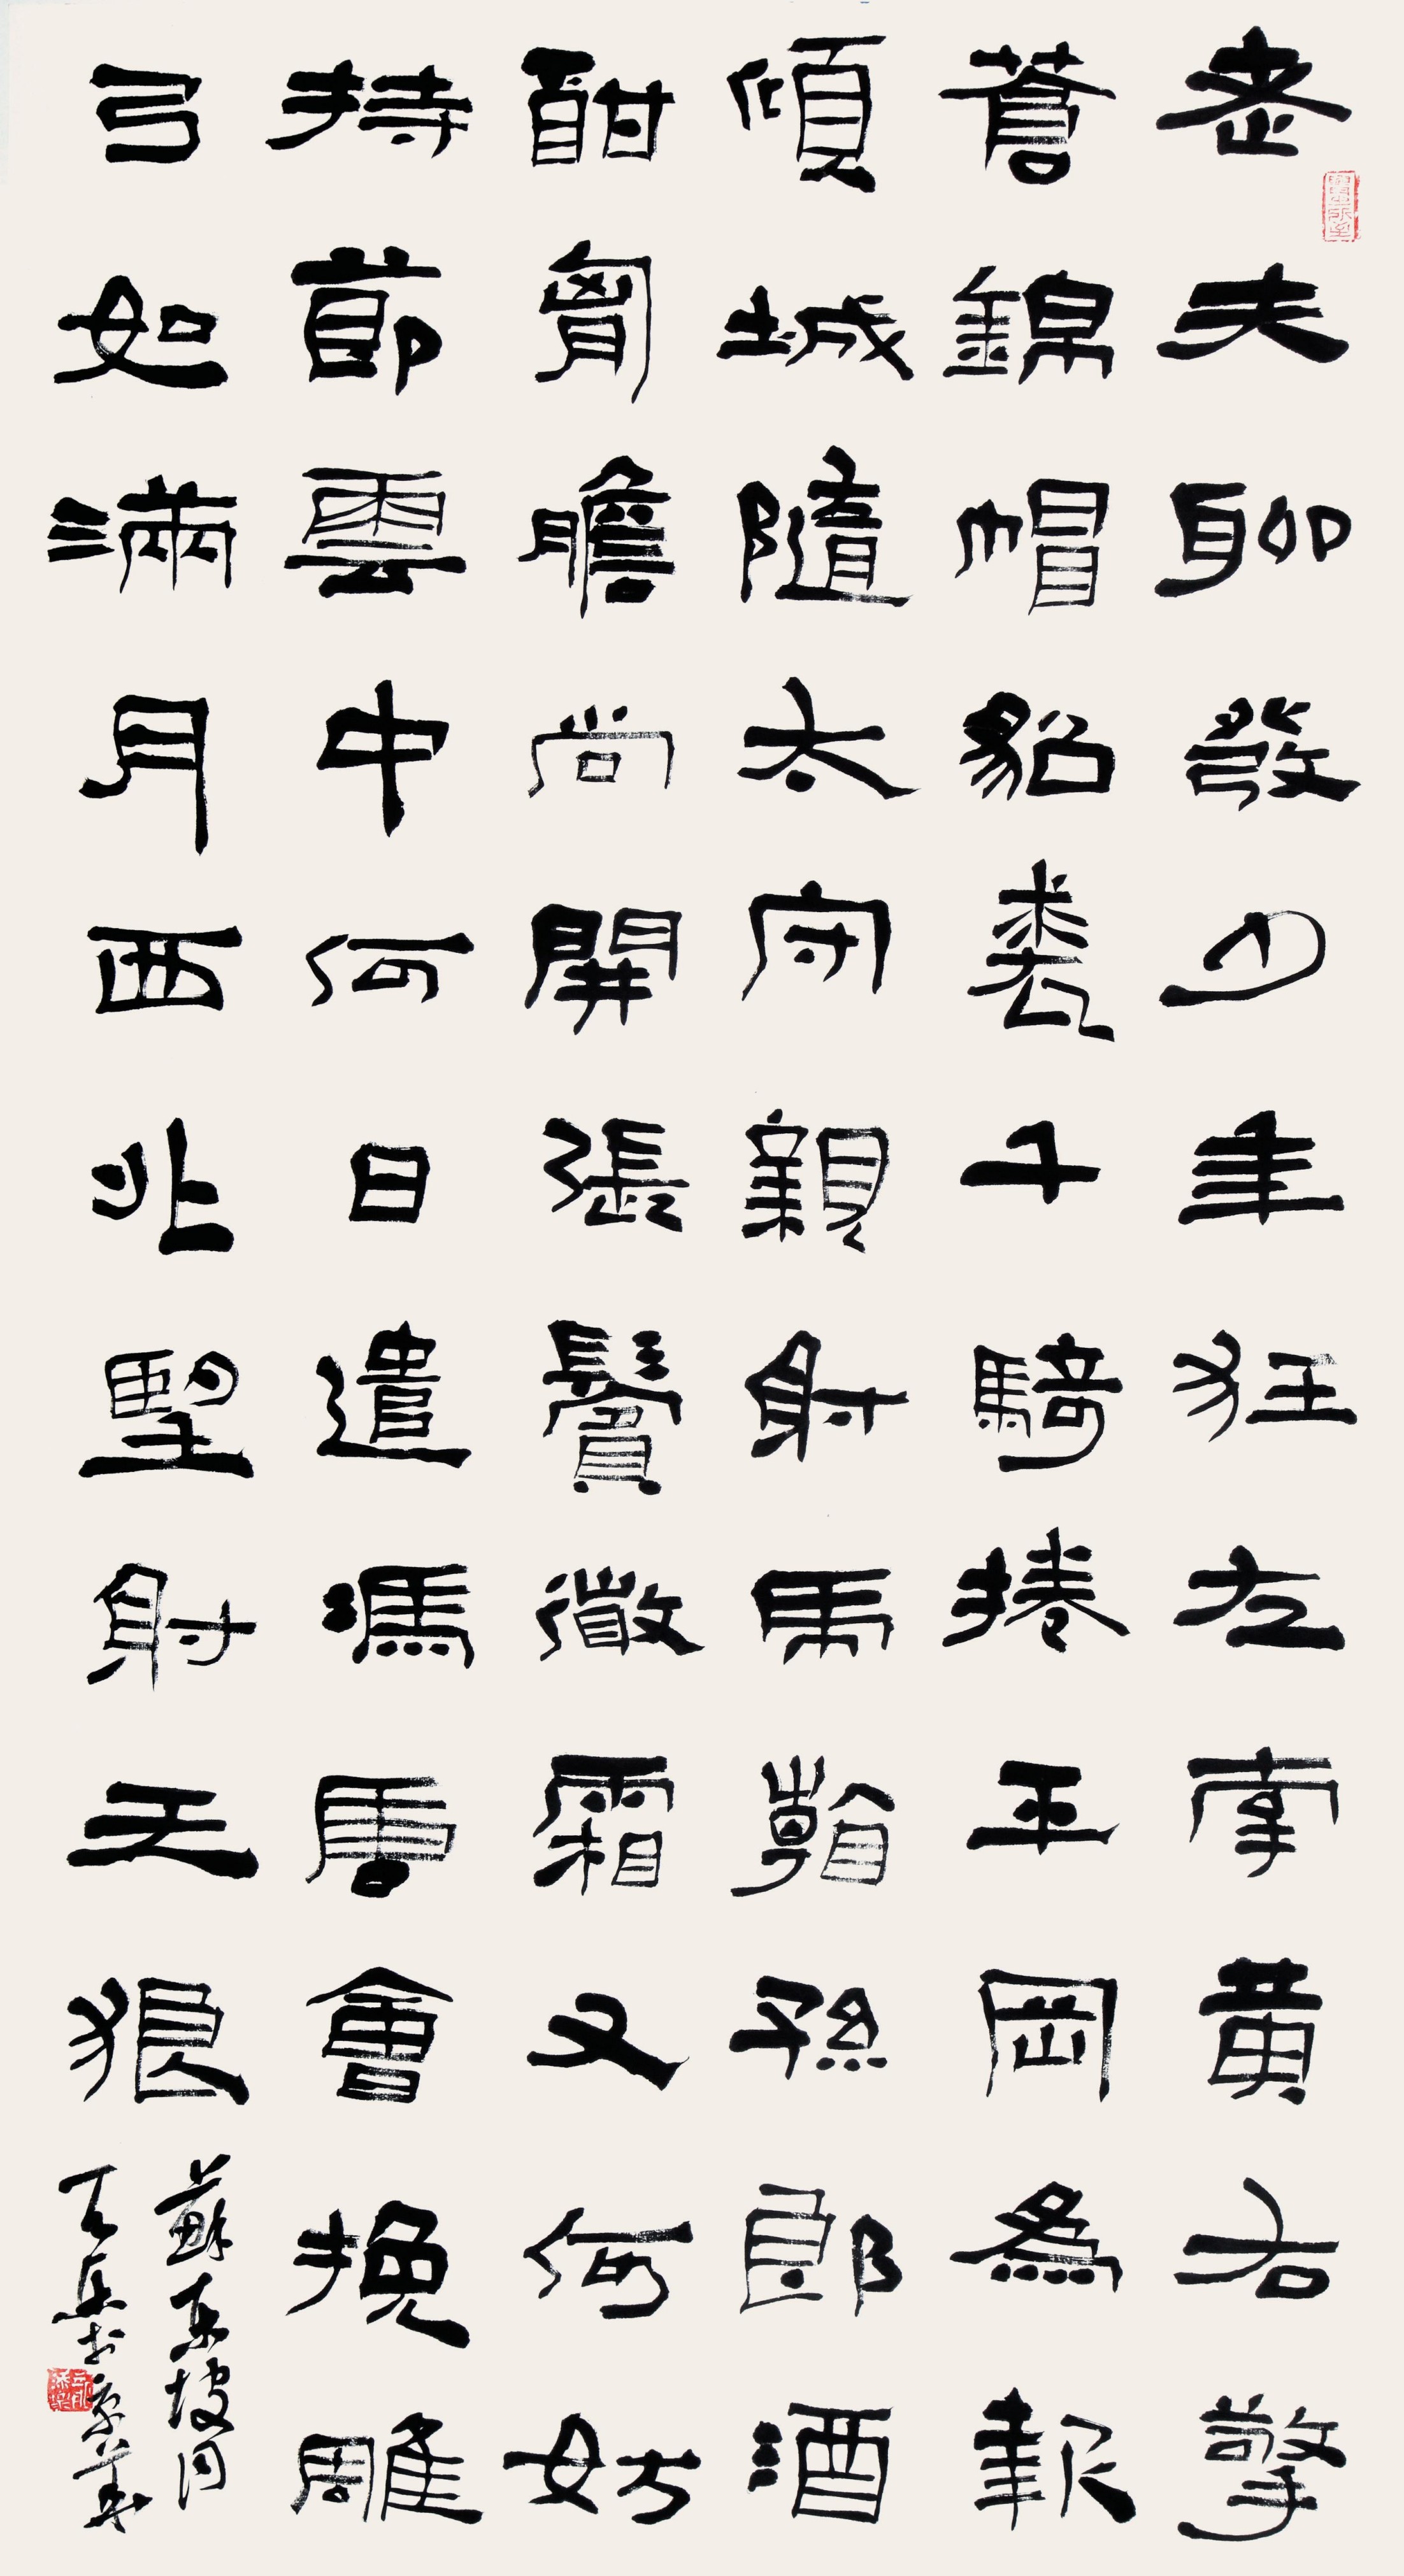 老夫聊發少年狂左牽黃右擎
蒼錦帽貂裘千騎捲平岡為報
傾城隨太守親射虎看孫郎酒
酣胸膽尚開張鬢微霜又何妨
持節雲中何日遣馮唐會挽雕
弓如滿月西北望射天狼
蘇東坡詞
樂書京華